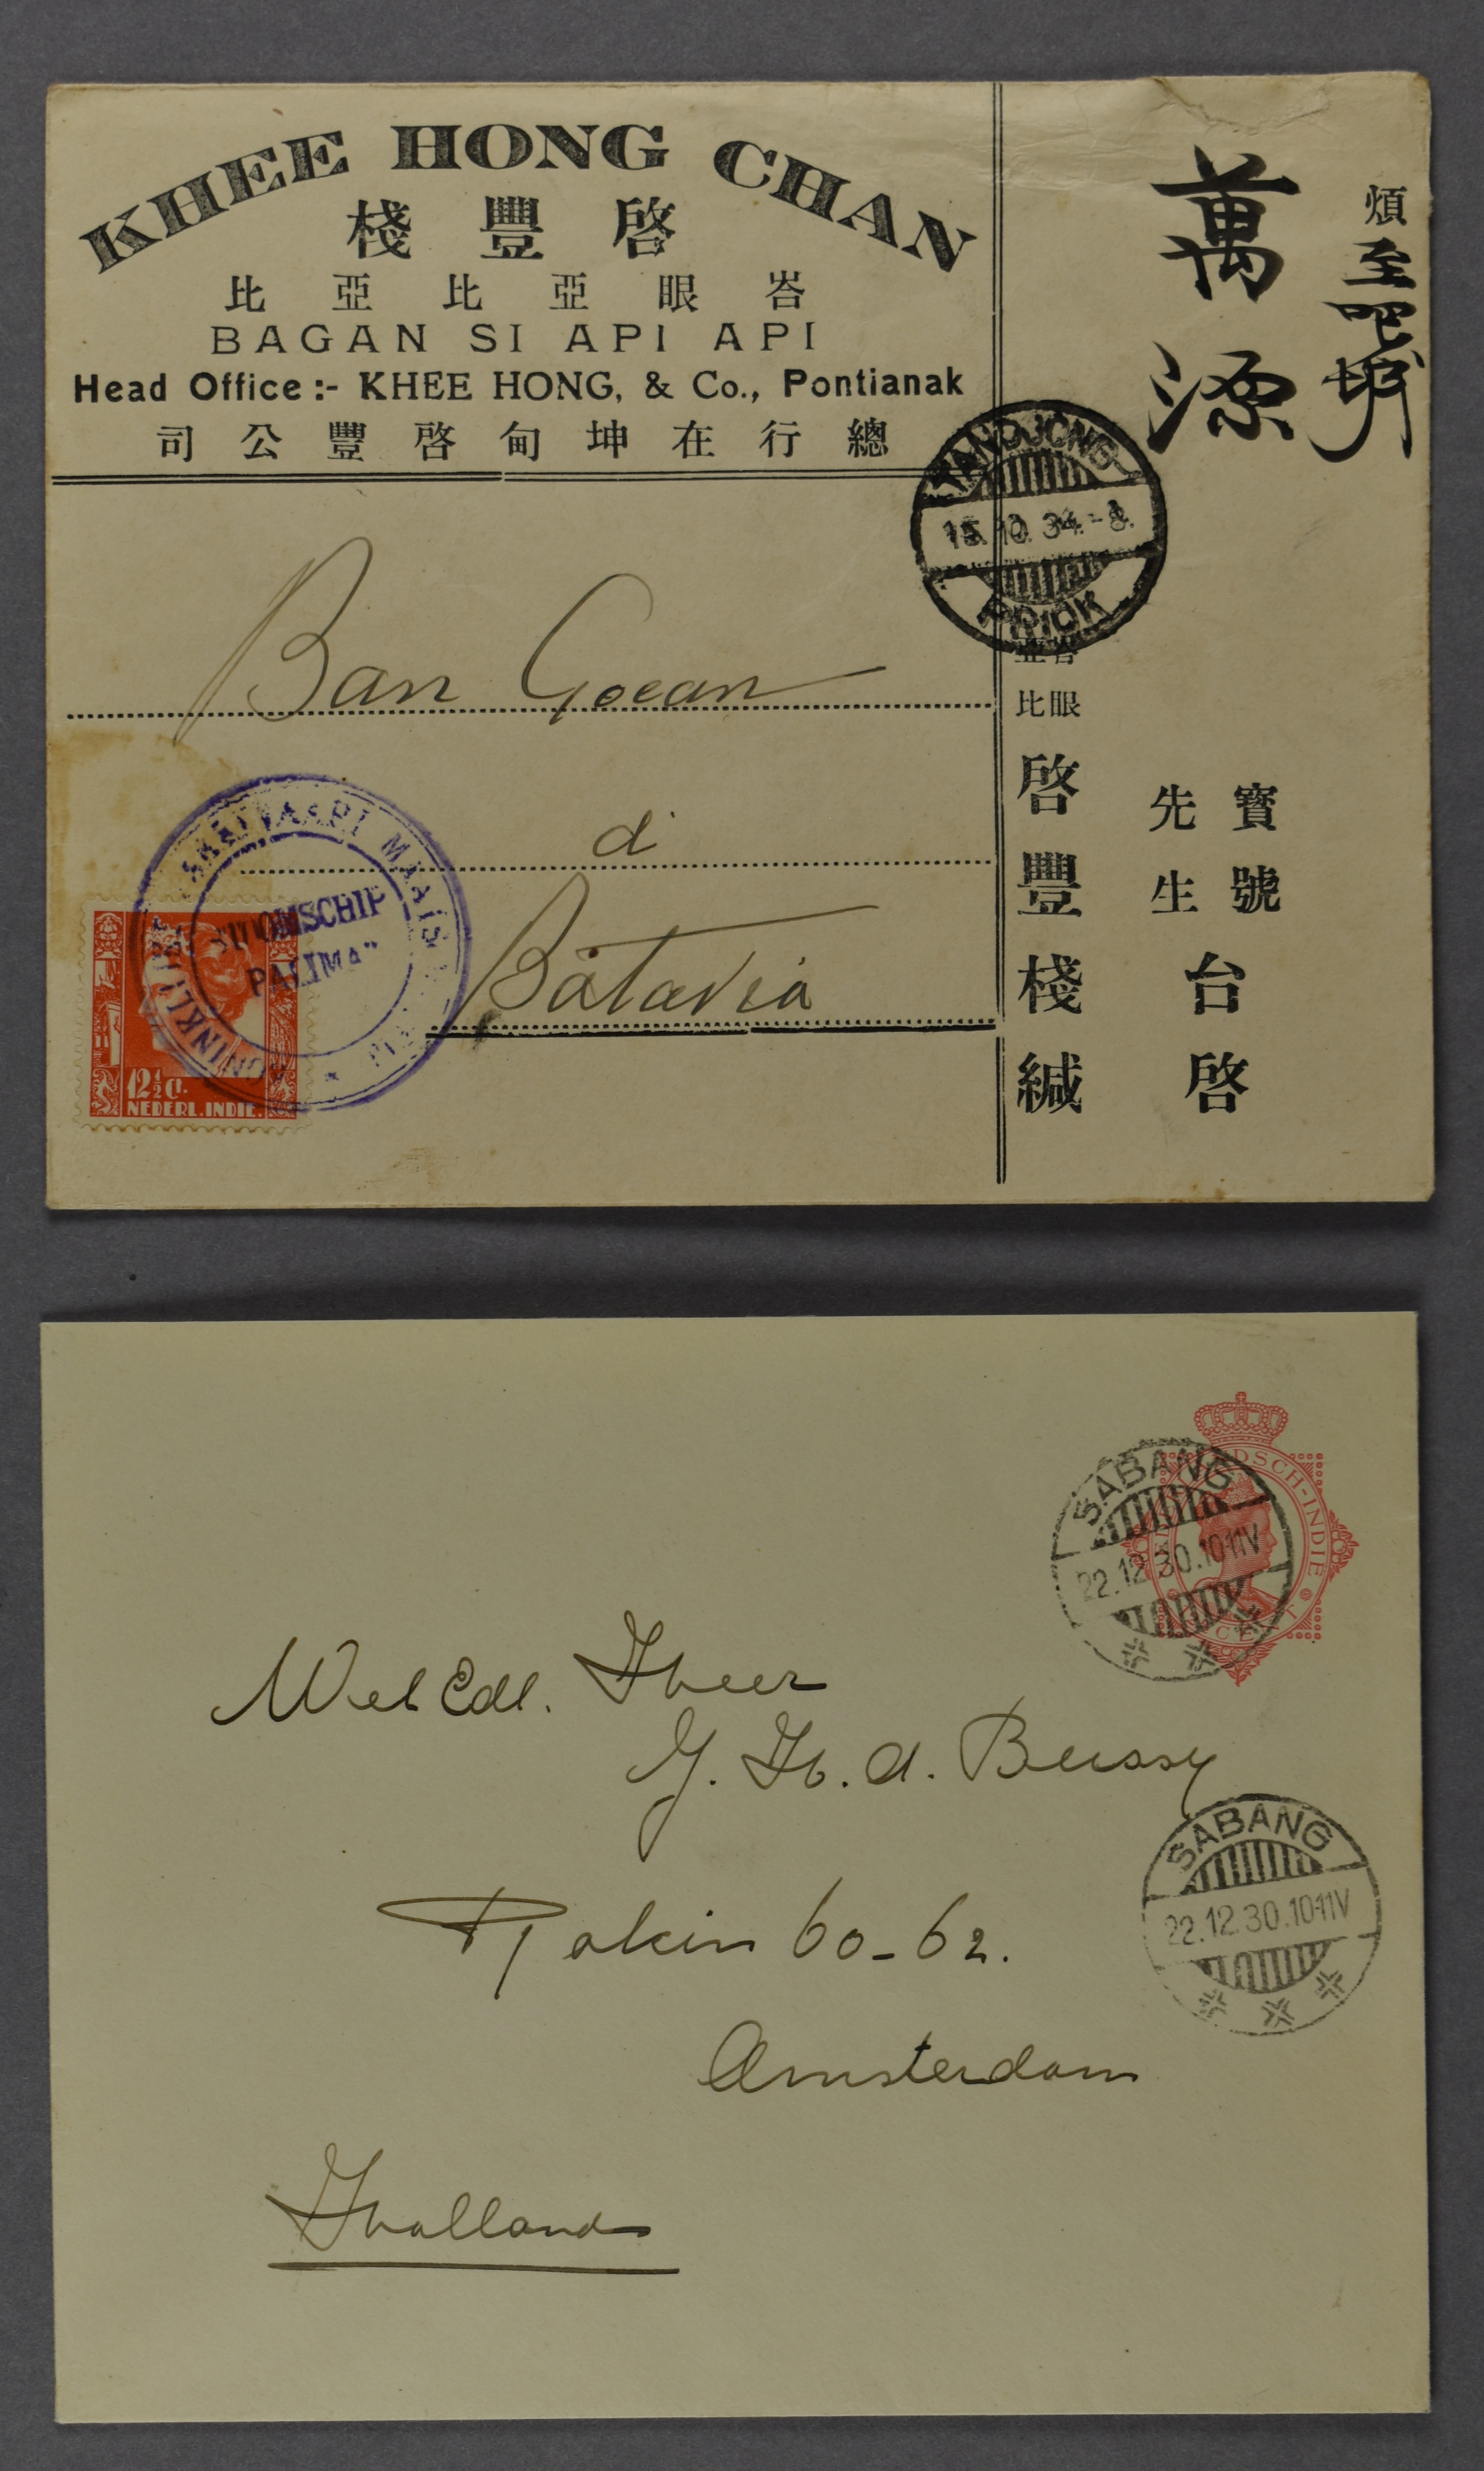 KHEE HONG CHAN
棧豐啓
比亞比亞眼峇
BAGAN SI API API
Head Office :- KHEE HONG, & Co., Pontianak
司公豐啓甸坤在行總
煩至吧城
萬源
寳號
先生
台啓
峇眼
亞比
啓豐棧緘
TANDJONG
15.10.34.-8.
PRIOK
Ban Goean
di
Batavia
STOOMSCHIP
PALIMA"
12½ Ct.
NEDERL. INDIE.
SABANG
22.12.30.10-11V
CENT
Wel Edl. Heer
J. H. d. Bussy
SABANG
22.12.30.10-11V
Rokin 60-62.
Amsterdam
Holland